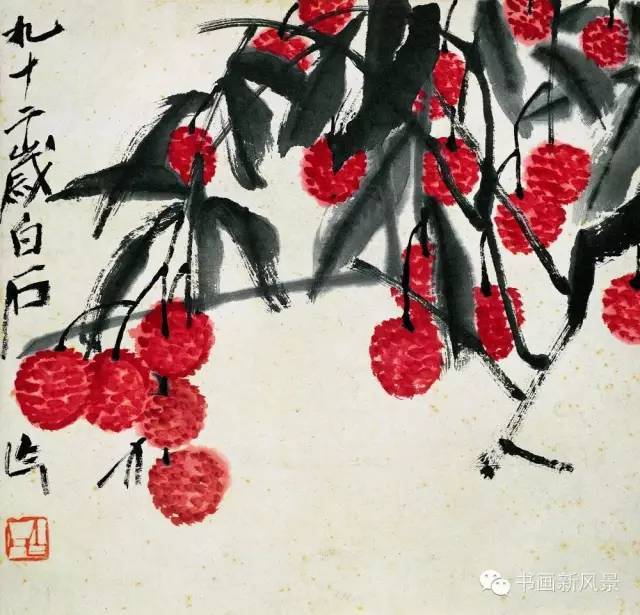 九十二歲白石
作
书画新风景